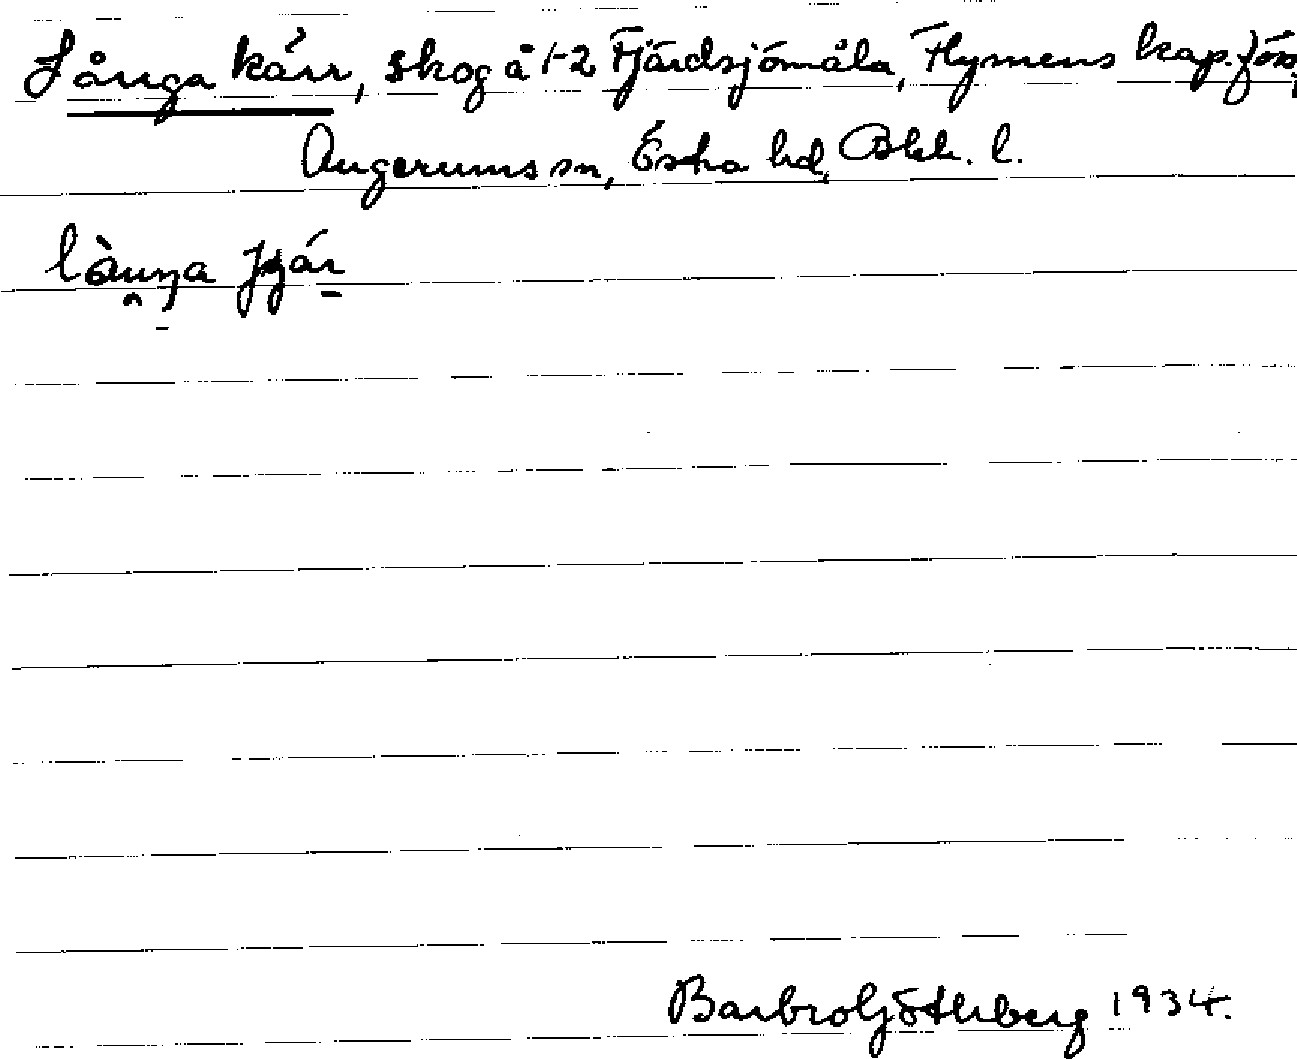 Långa kärr, skog å 1-2 Fjärdsjömåla, Flymens kap.förs.
Augerums sn, Östra hd, Blek. l.
Barbro Götherberg 1934.